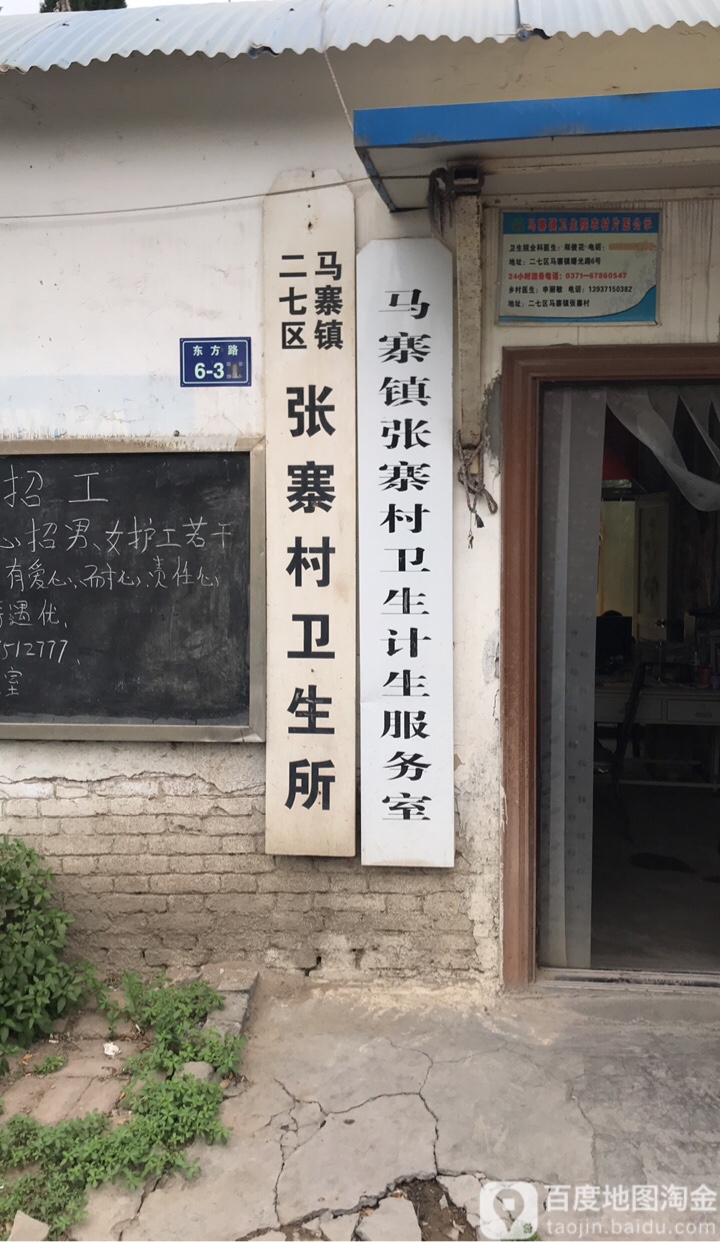 马寨镇卫生院农村片医公示
卫生院全科医生：郑俊花 电话：
地址：二七区马寨镇曙光路6号
24小时服务电话：0371—67860547
乡村医生：申丽敏 电话：13937150382
地址：二七区马寨镇张寨村
二七区
马寨镇
张寨村卫生所
马寨镇张寨村卫生计生服务室
东方路
6-3
招工
心招男、女护工若干
有爱心、耐心、责任心
遇优、
512777、
室
百度地图淘金
taojin.baidu.com